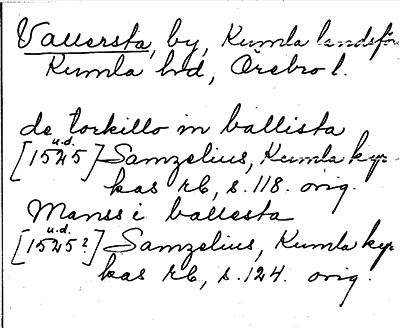 Vallersta, by, Kumla landsför
Kumla hd, Örebro l.
de torkillo in ballista
u.d.
[1545] Samzelius, Kumla kyr-
kas rb, s. 118. orig.
Manss i ballesta
u.d.
[1545?] Samzelius, Kumla kyr
kas rb, s. 124. orig.